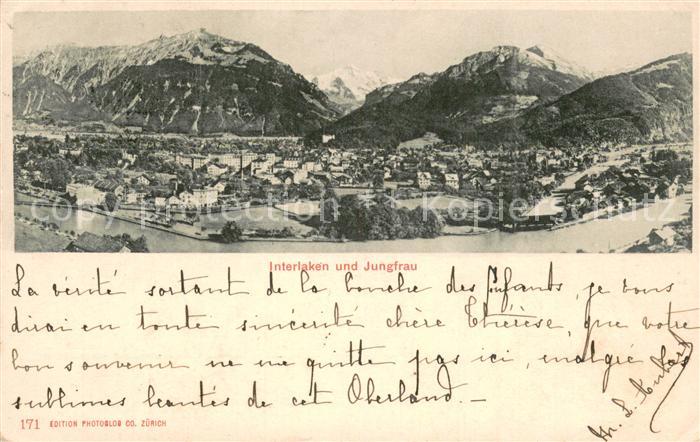 Interlaken und Jungfrau
La vérité sortant de la bouche des Enfants, je vous
dirai en toute sincérité chère Thérèse, que votre
bon souvenir ne me quitte pas ici, malgré les
sublimes beautés de cet Oberland. –
171 EDITION PHOTOGLOB CO. ZÜRICH
Copyright Kopierschutz